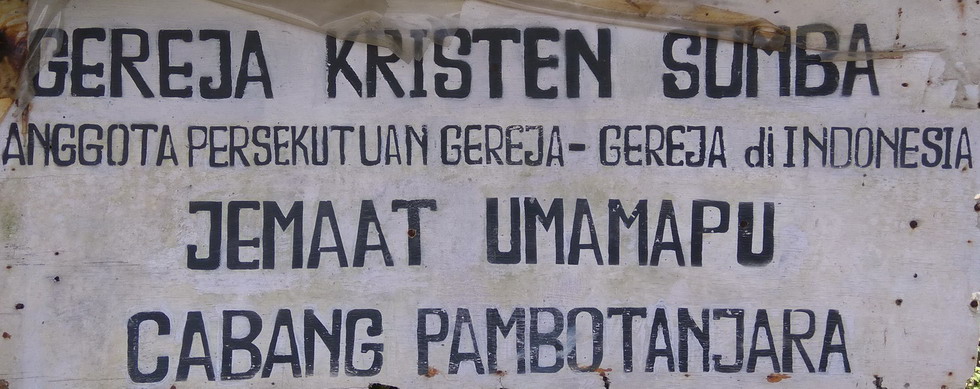 GEREJA KRISTEN SUMBA
ANGGOTA PERSEKUTUAN GEREJA- GEREJA di INDONESIA
JEMAAT UMAMAPU
CABANG PAMBOTANJARA